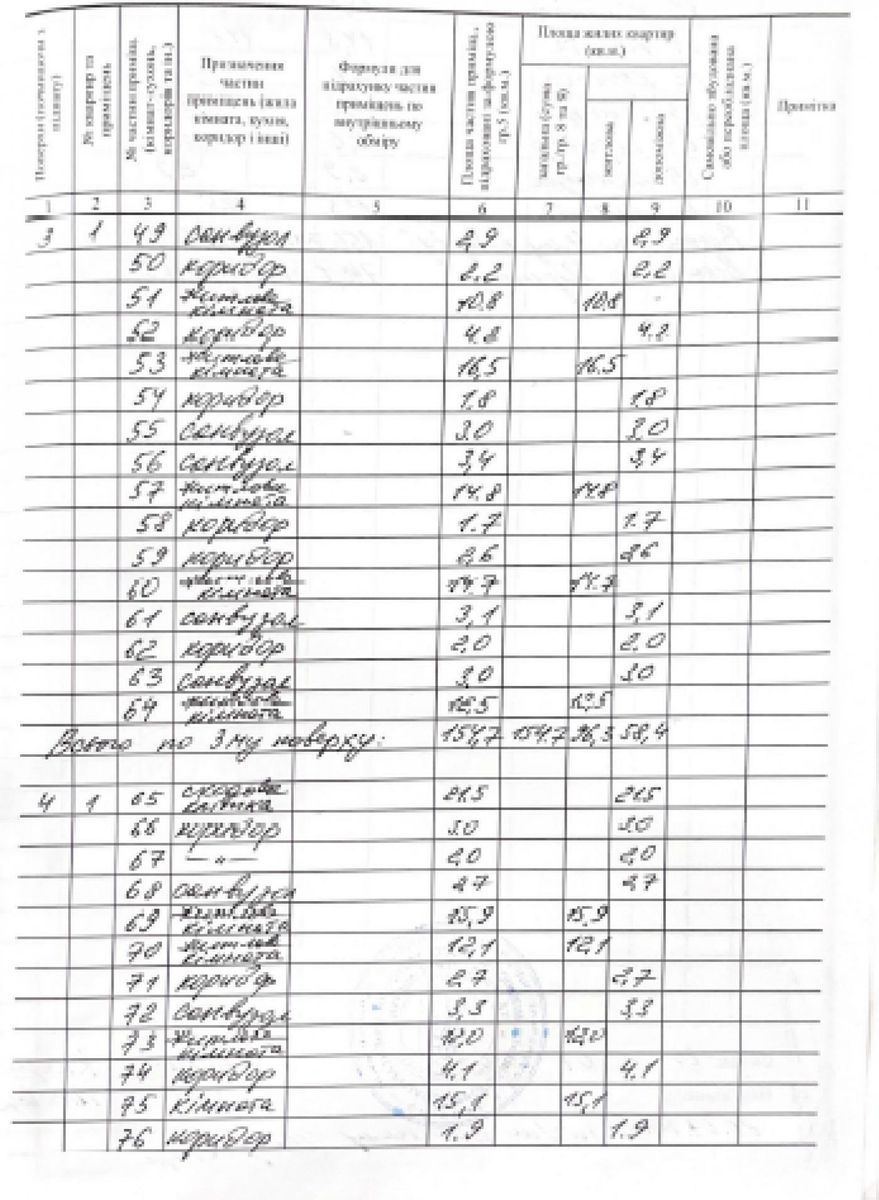 Поверхи (починаючи з підвалу) | № квартир та приміщень | № частин приміщ. (кімнат-сухонь, коридорів та ін.) | Призначення частин приміщень (жила кімната, кухня, коридор і інші) | Формули для підрахунку частин приміщень по внутрішньому обміру | Площа частин приміщ., підрахованих за формулою гр.5 (кв.м.) | Площа жилих квартир (кв.м.) | загальна (сума гр./гр. 8 та 9) | житлова | допоміжна | Самовільно збудована або переобладнана площа (кв.м.) | Примітка
1 | 2 | 3 | 4 | 5 | 6 | 7 | 8 | 9 | 10 | 11
3 | 1 | 49 | санвузол | 2,9 | 2,9
50 | коридор | 2.2 | 2,2
51 | житлова кімната | 10.8 | 10.8
52 | коридор | 4.2 | 4.2
53 | житлова кімната | 16,5 | 16.5
54 | коридор | 1.8 | 1.8
55 | санвузол | 3,0 | 3,0
56 | санвузол | 3,4 | 3,4
57 | житлова кімната | 14.8 | 14.8
58 | коридор | 1.7 | 1.7
59 | коридор | 2,6 | 2,6
60 | житлова кімната | 14.7 | 14.7
61 | санвузол | 3,1 | 3,1
62 | коридор | 2,0 | 2,0
63 | санвузол | 3,0 | 3,0
64 | житлова кімната
Всього по 3му поверху: | 154,7 | 154.7 | 96,3 | 58,4
4 | 1 | 65 | сходова клітка | 21.5 | 21.5
66 | коридор | 3.0 | 3.0
67 | —〃— | 2,0 | 2,0
68 | санвузол | 2,7 | 2,7
69 | житлова кімната | 15,9 | 15,9
70 | житлова кімната | 12,1 | 12,1
71 | коридор | 2,7 | 2,7
72 | санвузол | 3,3 | 3,3
73 | житлова кімната | 12,0 | 12,0
74 | коридор | 4.1 | 4.1
75 | кімната | 15,1 | 15,1
76 | коридор | 1.9 | 1.9